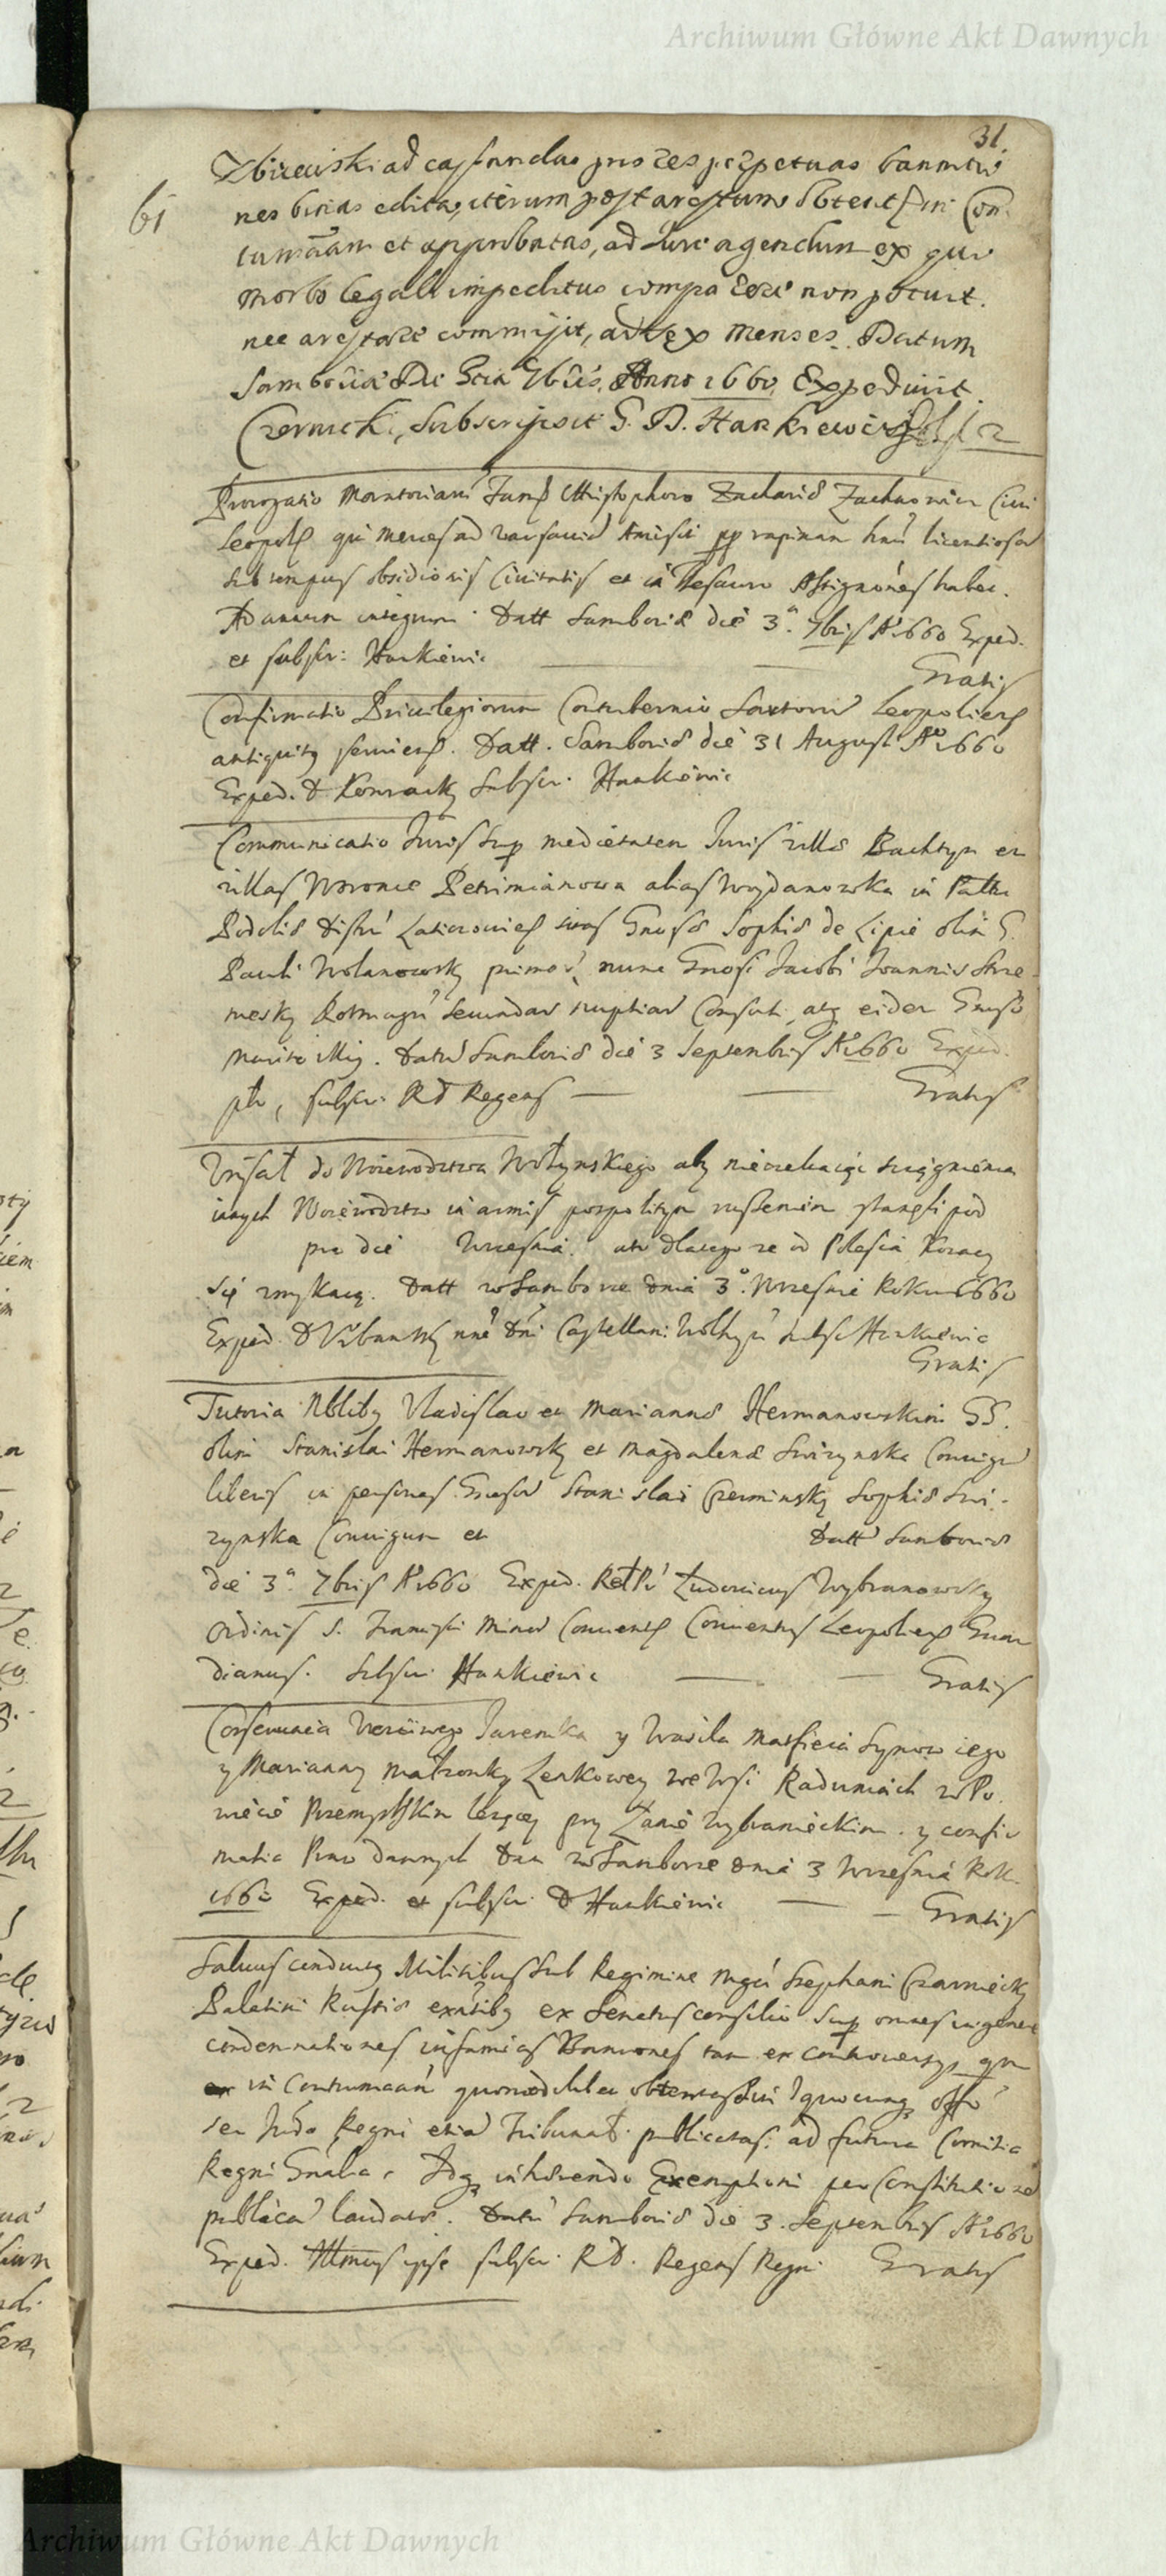 Archiwum Główne Akt Dawnych
31.
Zbirewski ad cassandas pro res perpetuas bannitio
61
nes binas editas, iterum post arestum obtent. in Con
tumaciam et approbatas, ad Iure agendum ex quo
morbo legali impeditus comparere non potuit.
nec arestare commisit, ad sex menses. Datum
Samboriae Die 3tia 7bris Anno 1660, Expedivit
Czernicki, Subscripsit G. D. Hankiewicz 2
Prorogatio Moratoriam Christophoro Zachariae Zachnowicz Civi
Leopol qui merces ad Varsaviam Amisit pp rapinam licentiosam
sub tempus obsidionis Civitatis et in Thesauro Assignationes habet.
Ad annum integrum. Datt Samboriae die 3a. 7bris Ao 1660 Exped.
et subscr: Hankiewic
Gratis
Confirmatio Privilegiorum Contubernio Sartorum Leopoliens
antiquitus serviens. Datt. Samboriae die 31 Augusti Ao 1660
Exped. D Konracky Subscr. Hankiewic
Communicatio Iuris sup medietatem Iuris villae Bachtyn et
villas Woronie Petrimianowa alias Woydanowka in Pattu
Podoliae Distri Laticzoviens sitas Gnosae Sophiae de Lipie olim G.
Pauli Wolanowsky primo, nunc Gnosi Iacobi Ioannis Strze
mesky Rotmagri secundar nuptiar Consorti, atq eidem Gnoso
marito illius. Datum Samboriae die 3 Septembris Ao 1660 Exped.
subscr. RD Regens
Gratis
do Woiewodztwa Wołynskiego aby nieczekaiąc sciągnienia
inszych Woiewodztw in armis pospolitym ruszeniem stanęli pod
pro die Września. ato dlatego ze od Polesia Kozacy
się zmykaią. Datt w Samborze dnia 3o. Wrzesnia Roku 1660
Exped. D Urbansky nne Dni Castellani Wolhyn subsc Hankiewic
Gratis
Tutoria Nblibus Vladislao et Mariannae Hermanowskim GG.
olim Stanislai Hermanowsky et Magdalenae Swirzynska Coniugum
liberis in personas Gnosor Stanislai Czerminsky Sophiae Swi-
rzynska Coniugum et Datt Samboriae
die 3a. 7bris Ao 1660 Exped. Ludovicus Wybranowsky
Ordinis S. Francisci Minor Convent Conventus Leopoliens Guar
dianus. Subscr. Hankiewic
Gratis
Conservatia Uczciwego Iaremka y Wasila Matfieia Synow iego
y Marianny Małzonky Lenkowey we Wsi Radunicach w Po.
wiecie Przemyslskim lezącey przy Łanie Wybranieckim. y confir
matia Praw dawnych Dan w Samborze dnia 3 Września Rok.
1660 Exped. et subscr. D Hankiewic
Gratis
Salvus conductus Militibus sub Regimine Mgci Stephani Czarniecky
Palatini Russiae exntibus ex Senatus consilio sup omnes in genere
condemnationes infamias Banniones tam ex controversys quam
in Contumaciam quomodolibet obtentas in quocunq offo
seu Iudo Regni etiam Tribunal. publicatas: ad futura Comitia
Regni Gnalia. Idq inhaerendo Exemptioni per Constitutionem
publicam laudatae. Datum Samboriae die 3. Septembris Ao 1660
Exped. Illmus ipse subscr. RD. Regens Regni Gratis
Archiwum Główne Akt Dawnych